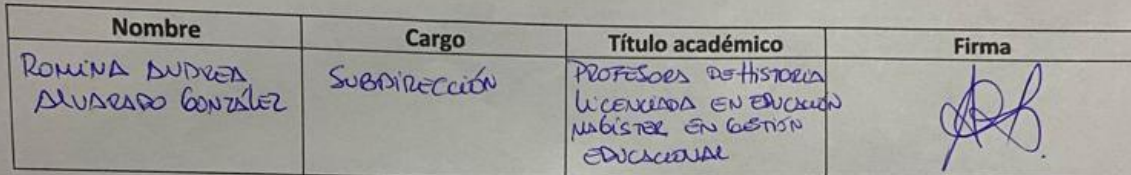 Nombre Cargo Título académico Firma
ROMINA ANDREA
ALVARADO GONZÁLEZ
SUBDIRECCIÓN
PROFESORA DE HISTORIA
LICENCIADA EN EDUCACIÓN
MAGÍSTER EN GESTIÓN
EDUCACIONAL